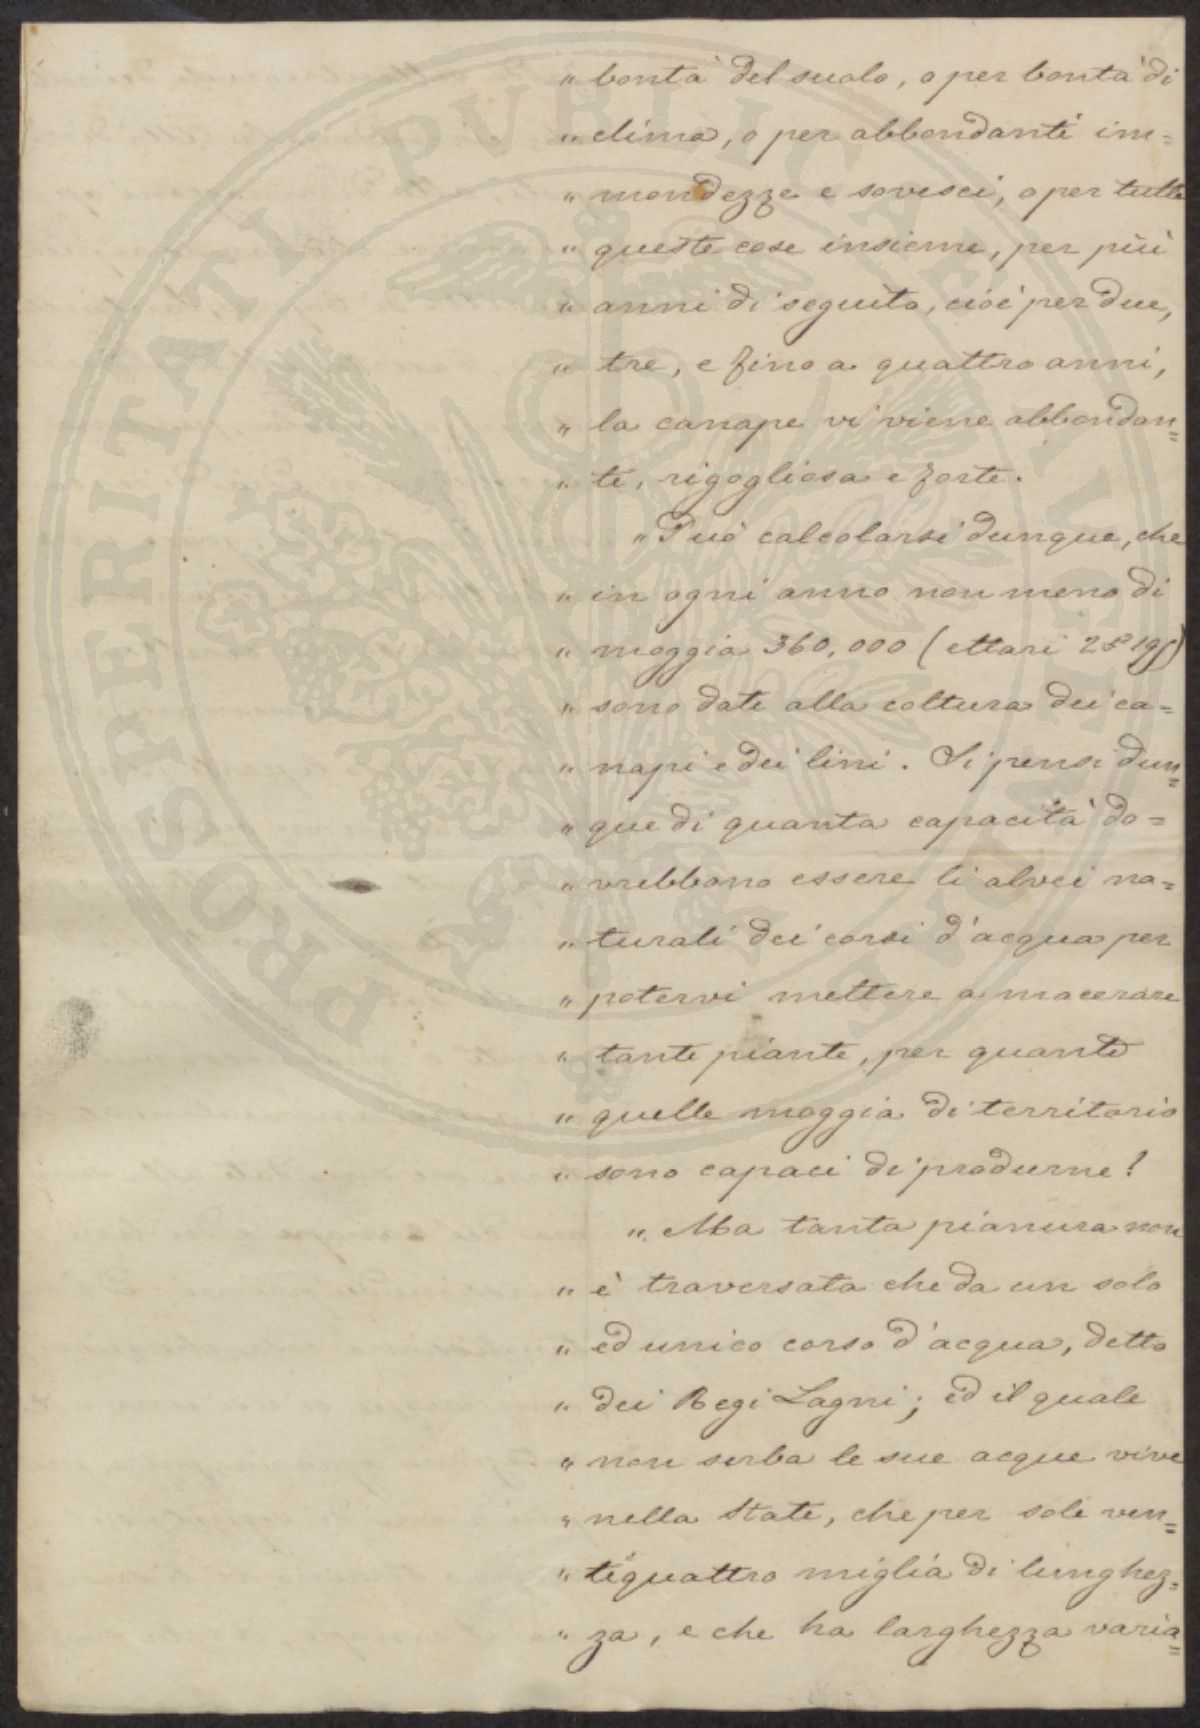 " bontà del suolo, o per bontà di
" clima, o per abbondanti im=
" mondezze e sovesci, o per tutte
" queste cose insieme, per più
" anni di seguito, cioè per due,
" tre, e fino a quattro anni,
" la canape vi viene abbondan=
" te, rigogliosa e forte.
" Può calcolarsi dunque, che
" in ogni anno non meno di
" moggia 360,000 (ettari
" sono date alla coltura dei ca=
" napi e dei lini. Si pensi dun=
" que di quanta capacità do=
" vrebbono essere li alvei na=
" turali dei corsi d'acqua per
" potervi mettere a macerare
" tante piante, per quante
" quelle moggia di territorio
" sono capaci di produrne!
" Ma tanta pianura non
" è traversata che da un solo
" ed unico corso d'acqua, detto
" dei Regi Lagni; ed il quale
" non serba le sue acque vive
" nella state, che per sole ven=
" tiquattro miglia di lunghez=
" za, e che ha larghezza varia=
PROSPERITATI PVBLICAE AVGENDAE